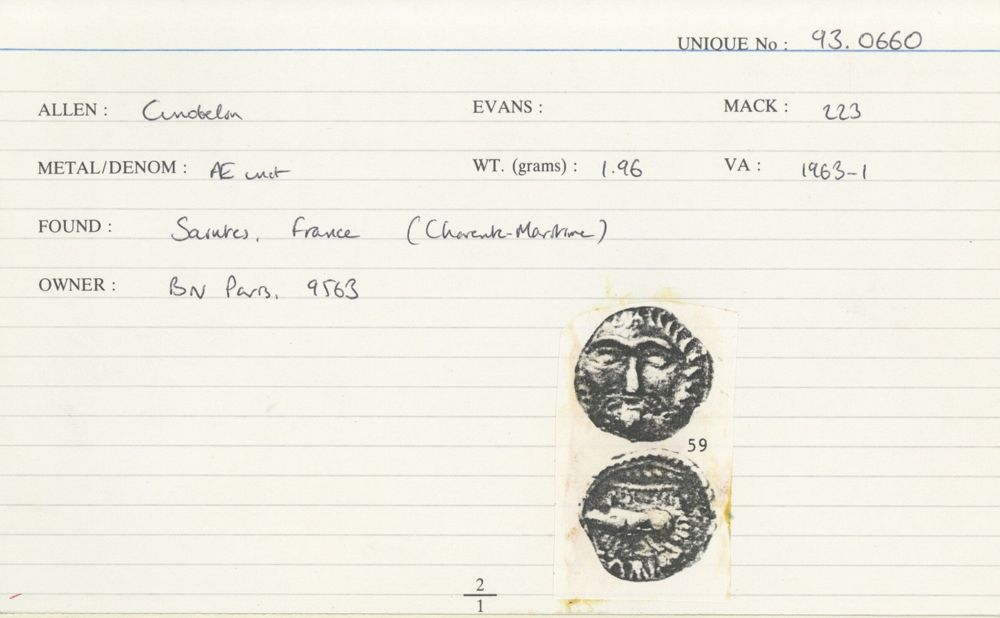 UNIQUE No : 93.0660
ALLEN : Cunobelin EVANS : MACK : 223
METAL/DENOM : AE unit WT. (grams) : 1.96 VA : 1963-1
FOUND : Saintes, France (Charente-Maritime)
OWNER : BN Paris, 9563
59
2
1